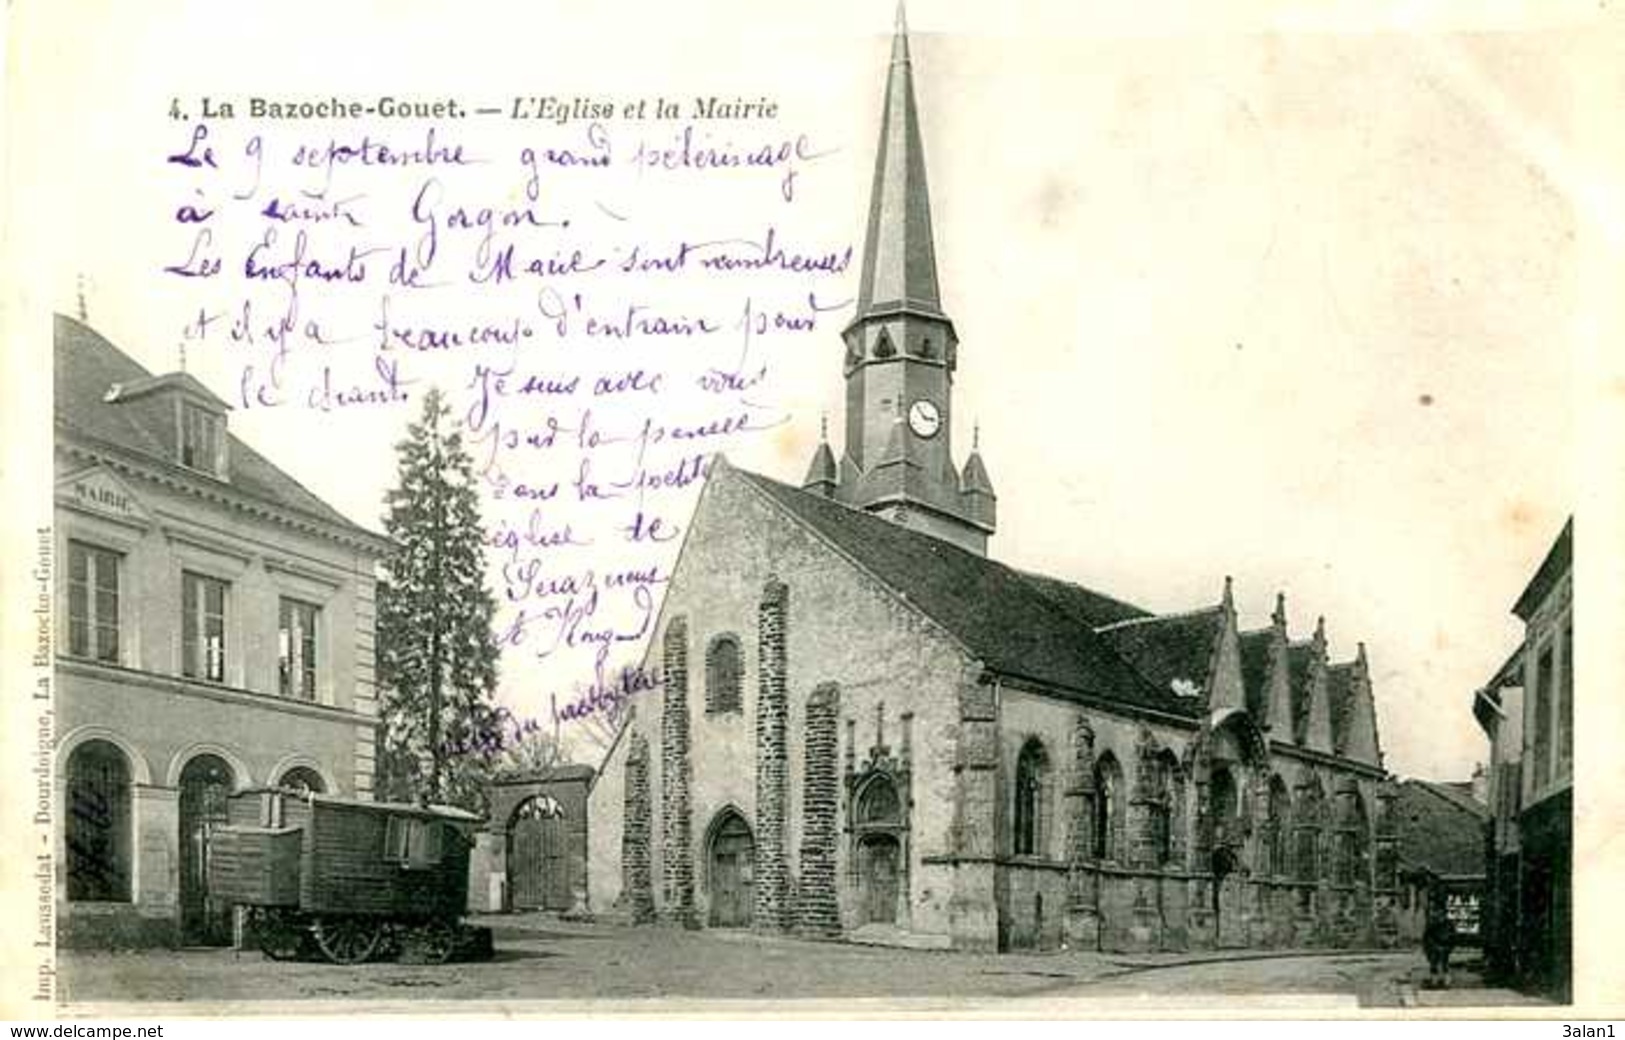 4. La Bazoche-Gouet. — L'Eglise et la Mairie
Le 9 septembre grand pèlerinage
à saint Gorgon.
Les Enfants de Marie sont nombreuses
et il y a beaucoup d'entrain pour
le chant. Je suis avec vous
par la pensée
dans la petite
église de
et
du presbytère
MAIRIE
Imp. Laussedat - Dourdoigne, La Bazoche-Gouet
www.delcampe.net
3alan1